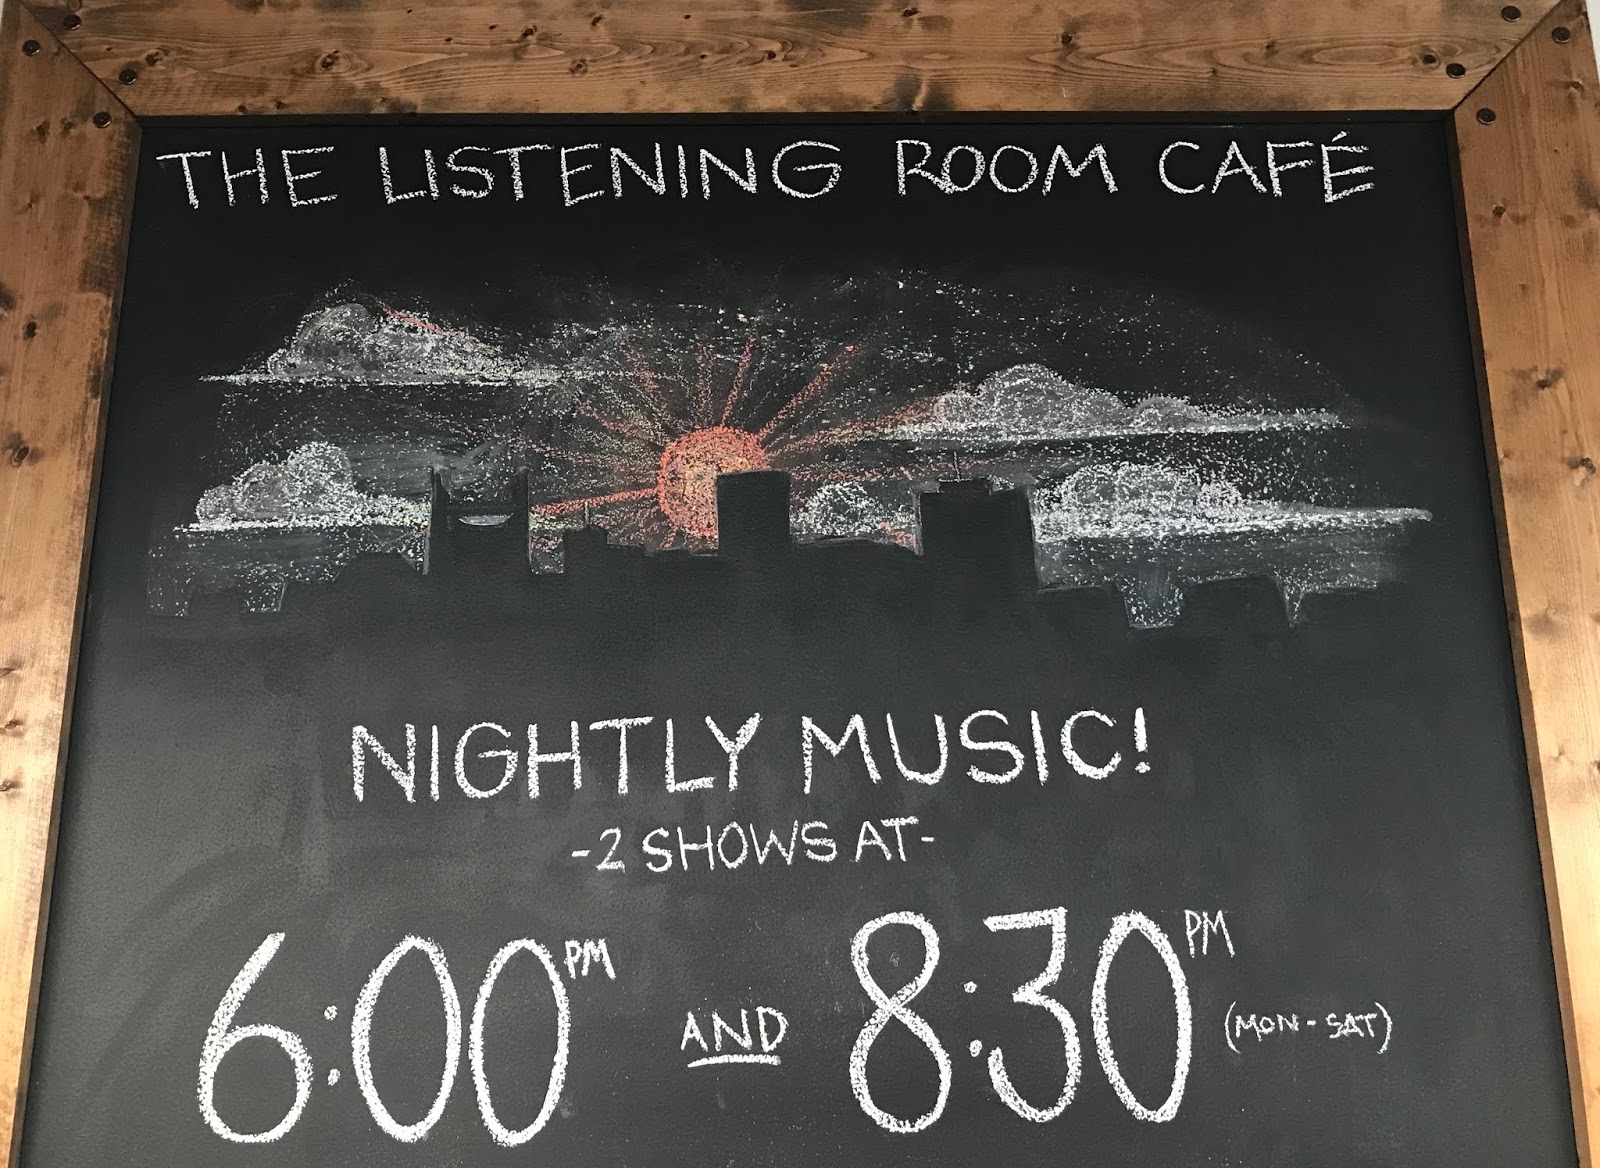 THE LISTENING ROOM CAFÉ
NIGHTLY MUSIC!
-2 SHOWS AT-
6:00 PM AND 8:30 PM (MON-SAT)